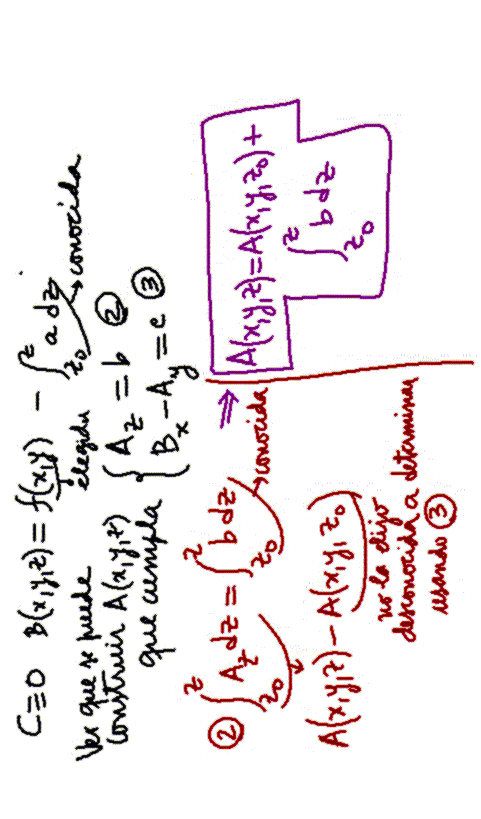 C≡0 B(x,y,z) = f(x,y) - ∫_{z_0}^{z} a dz
elegida → conocida
Ver que se puede
construir A(x,y,z) { A_z = b ②
que cumpla { B_x - A_y = c ③
② ∫_{z_0}^{z} A_z dz = ∫_{z_0}^{z} b dz ⇒
→ conocida
A(x,y,z) - A(x,y,z_0)
no la dijo
desconocida a determinar
usando ③
A(x,y,z) = A(x,y,z_0) +
∫_{z_0}^{z} b dz